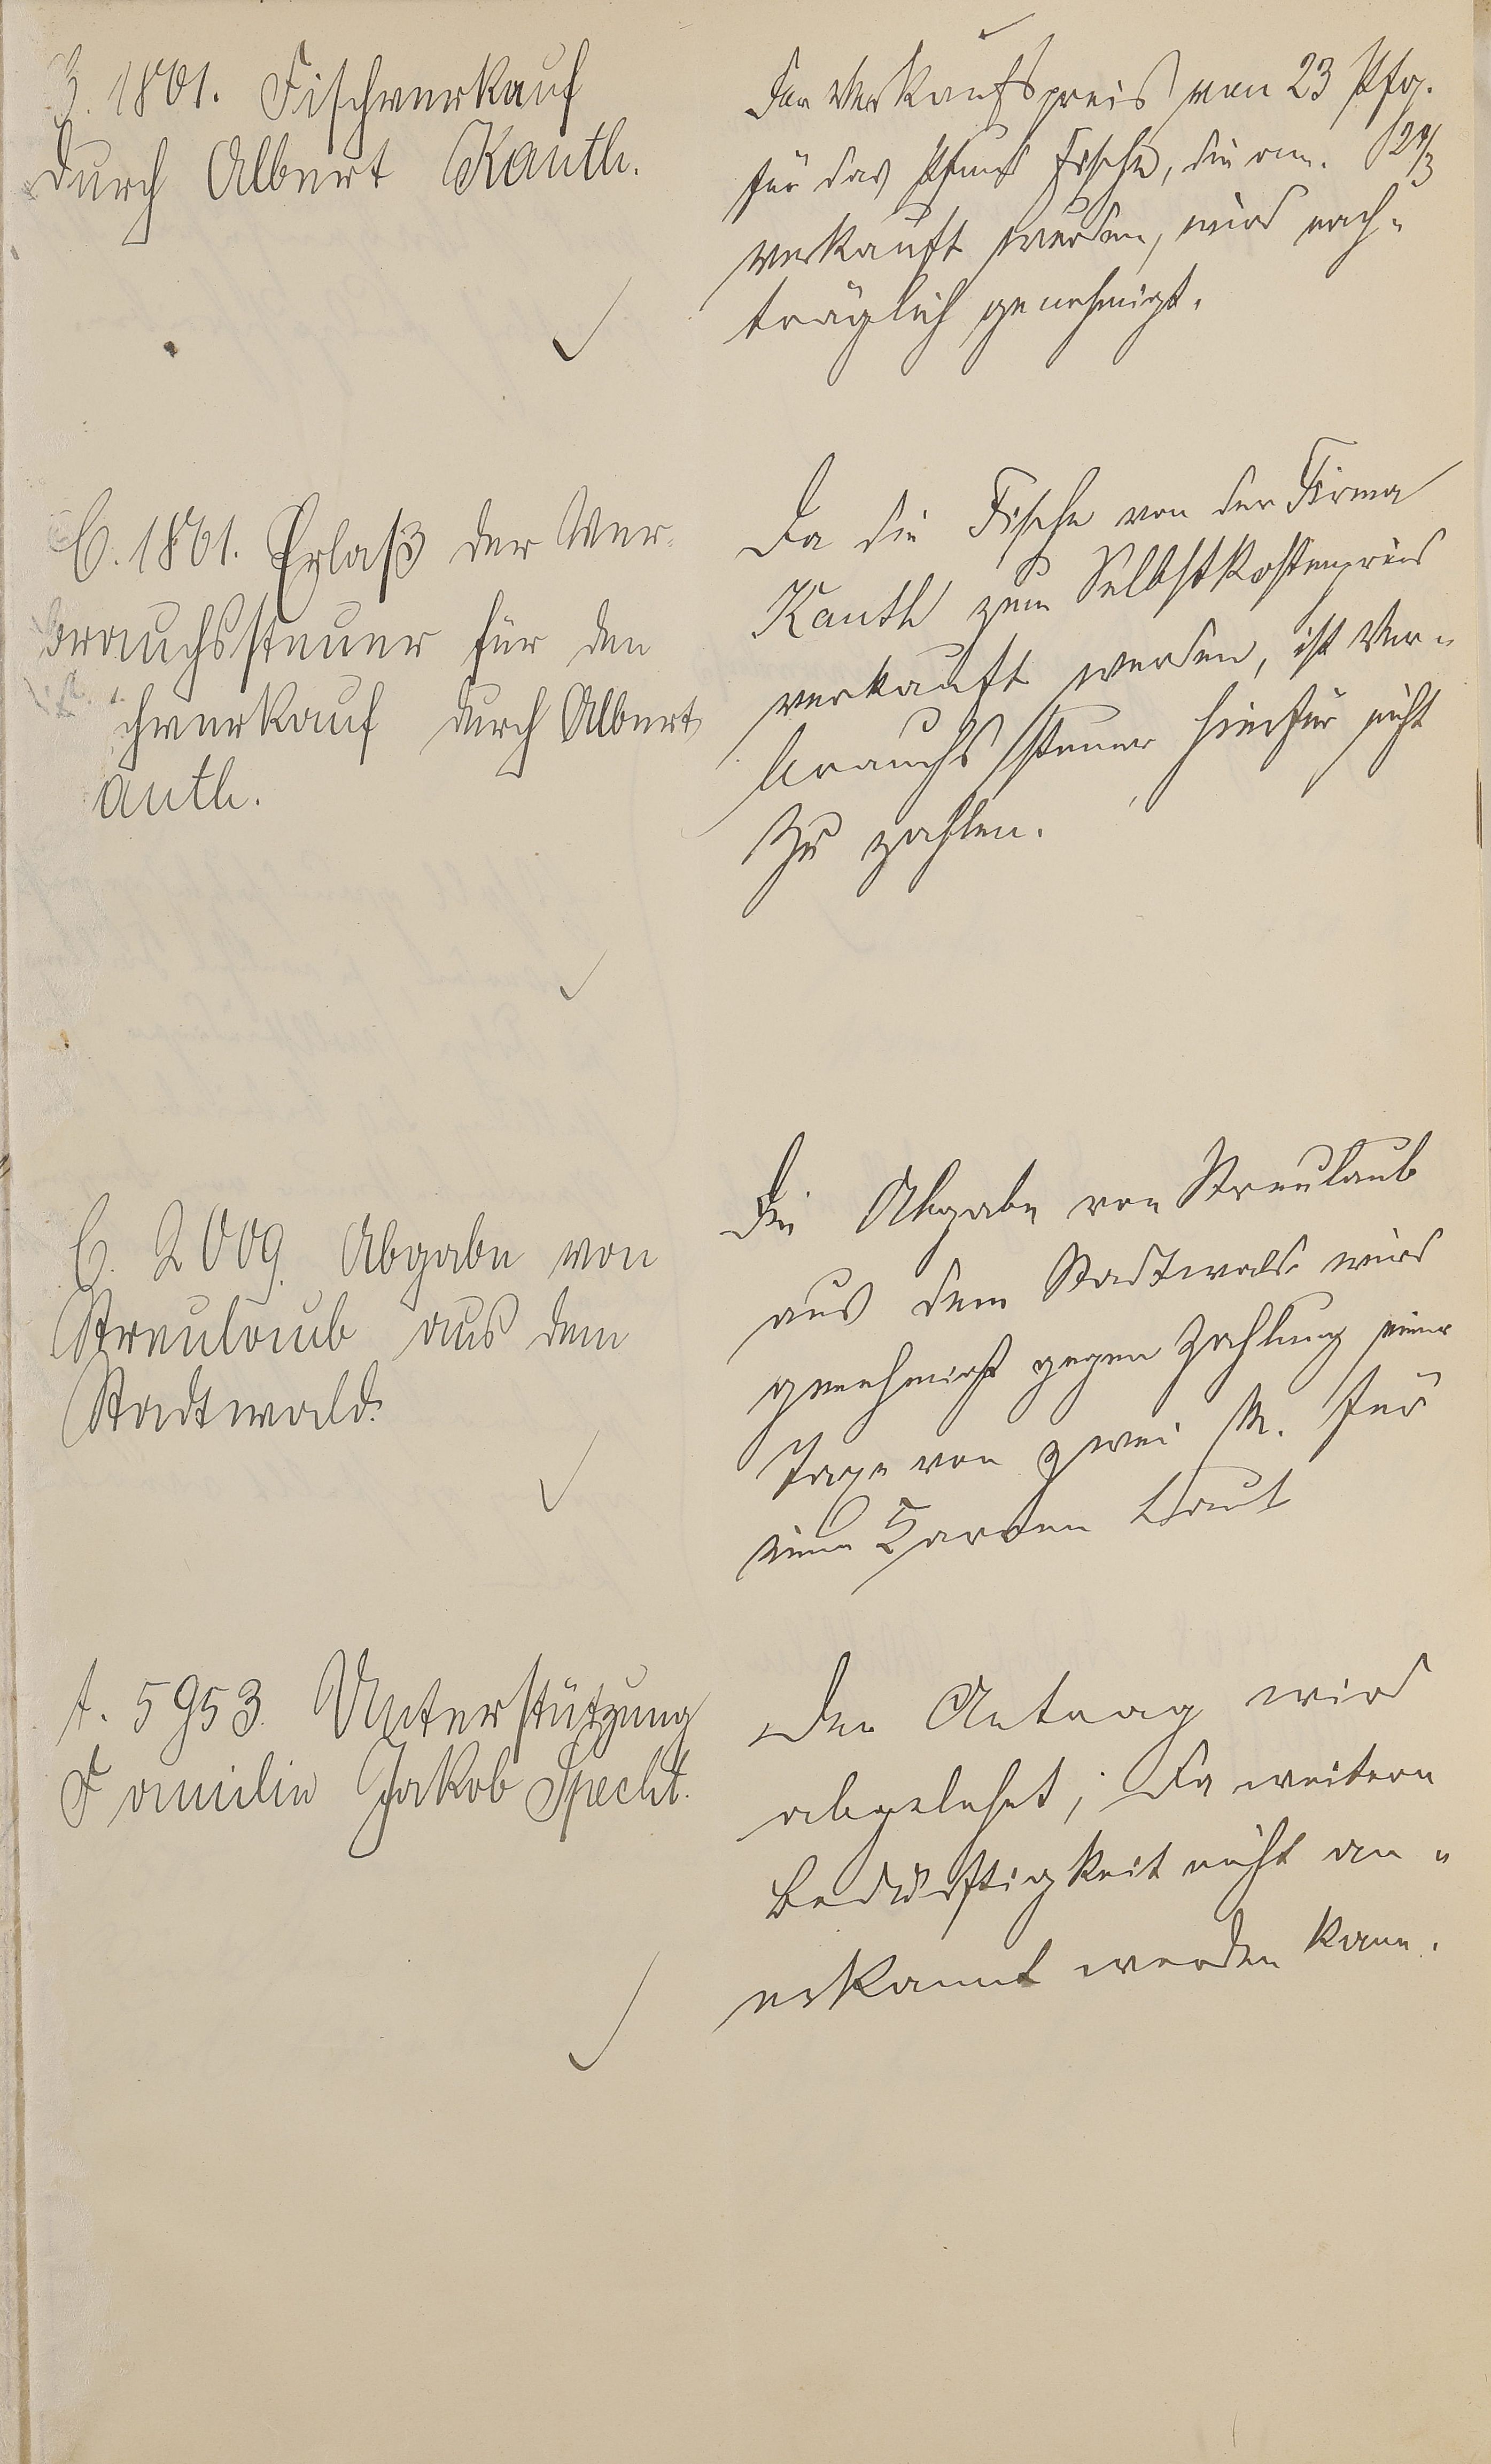 3. 1801. Fischverkauf
durch Albert Kauth.
Der Verkaufspreis von 23 Pfg.
für das Pfund Fische, die am
verkauft wurden, wird nach-
träglich genehmigt.
C. 1861. Erlaß der Ver-
brauchssteuer für den
schverkauf durch Albert
auth.
Da die Fische von der Firma
Kauth zum Selbstkostenpreis
verkauft werden, ist Ver-
brauchssteuer hierfür nicht
zu zahlen.
C. 2009. Abgabe von
Streulaub aus dem
Stadtwald.
Die Abgabe von Streulaub
aus dem Stadtwalde wird
genehmigt gegen Zahlung einer
Taxe von zwei M. für
einen Karren Laub
t. 5953. Unterstützung
Familie Jakob Specht.
Der Antrag wird
abgelehnt, da weitere
Bedürftigkeit nicht an-
erkannt werden kann.